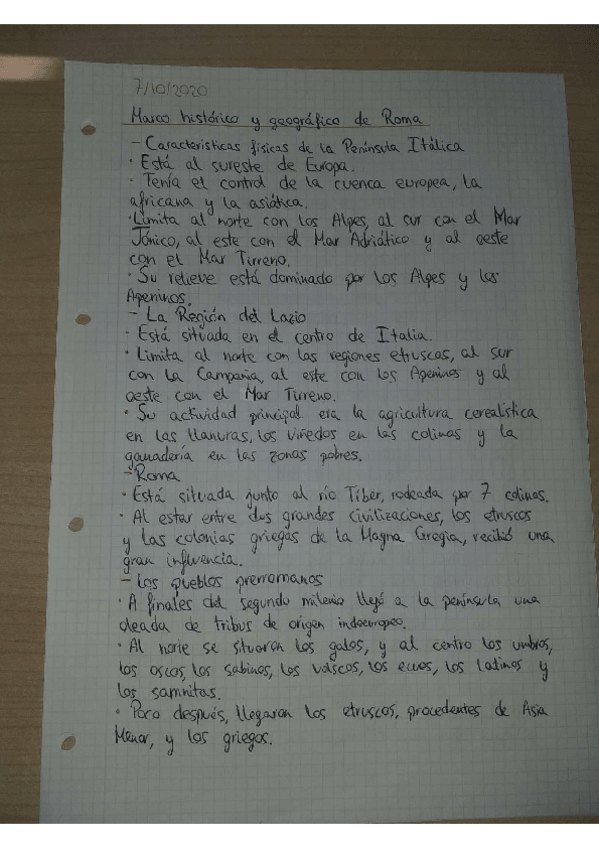 7/10/2020
Marco histórico y geográfico de Roma
- Características físicas de la Península Itálica
· Está al sureste de Europa.
· Tenía el control de la cuenca europea, la
africana y la asiática.
· Limita al norte con los Alpes, al sur con el Mar
Jónico, al este con el Mar Adriático y al oeste
con el Mar Tirreno.
· Su relieve está dominado por los Alpes y los
Apeninos.
- La Región del Lazio
· Está situada en el centro de Italia.
· Limita al norte con las regiones etruscas, al sur
con la Campania, al este con los Apeninos y al
oeste con el Mar Tirreno.
· Su actividad principal era la agricultura cerealística
en las llanuras, los viñedos en las colinas y la
ganadería en las zonas pobres.
- Roma
· Está situada junto al río Tíber, rodeada por 7 colinas.
· Al estar entre dos grandes civilizaciones, los etruscos
y las colonias griegas de la Magna Gregia, recibió una
gran influencia.
- Los pueblos prerromanos
· A finales del segundo milenio llegó a la península una
oleada de tribus de origen indoeuropeo.
· Al norte se situaron los galos, y al centro los umbros,
los oscos, los sabinos, los volscos, los ecuos, los latinos y
los samnitas.
· Poco después, llegaron los etruscos, procedentes de Asia
Menor, y los griegos.